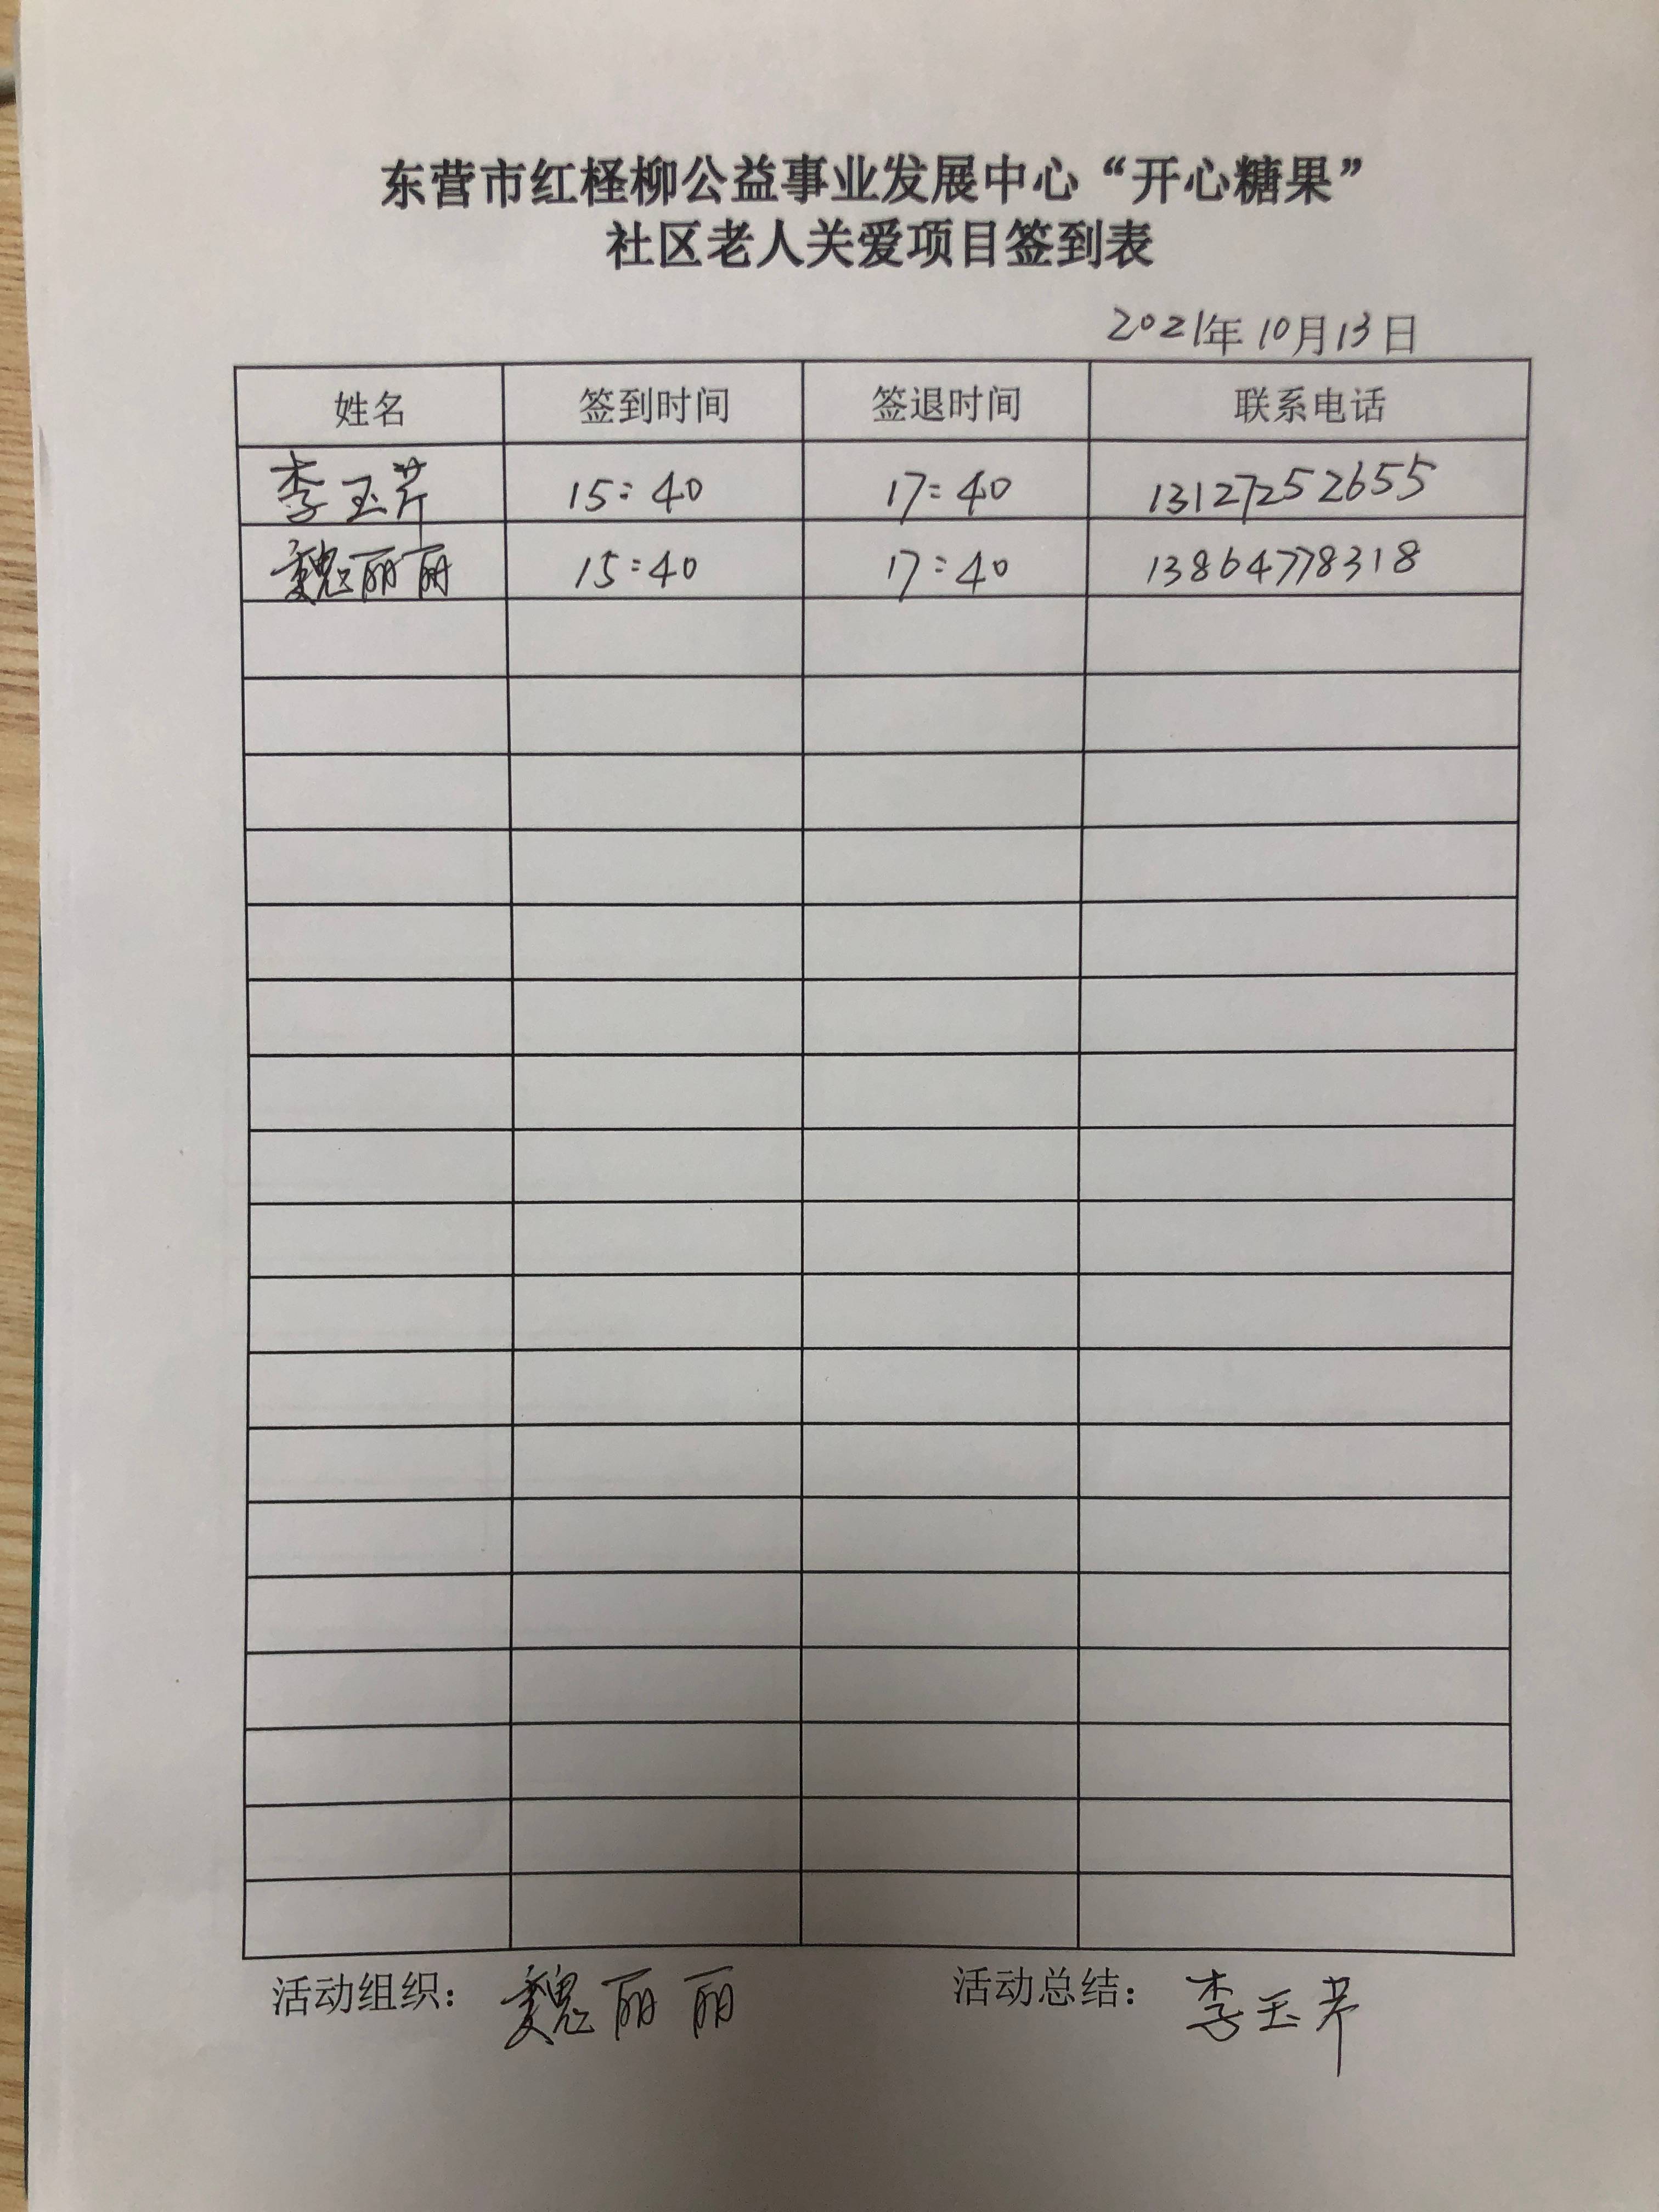 东营市红柽柳公益事业发展中心“开心糖果”
社区老人关爱项目签到表
2021年10月13日
姓名 签到时间 签退时间 联系电话
李玉芹 15:40 17:40 13127252655
魏丽丽 15:40 17:40 13864778318
活动组织：魏丽丽 活动总结：李玉芹